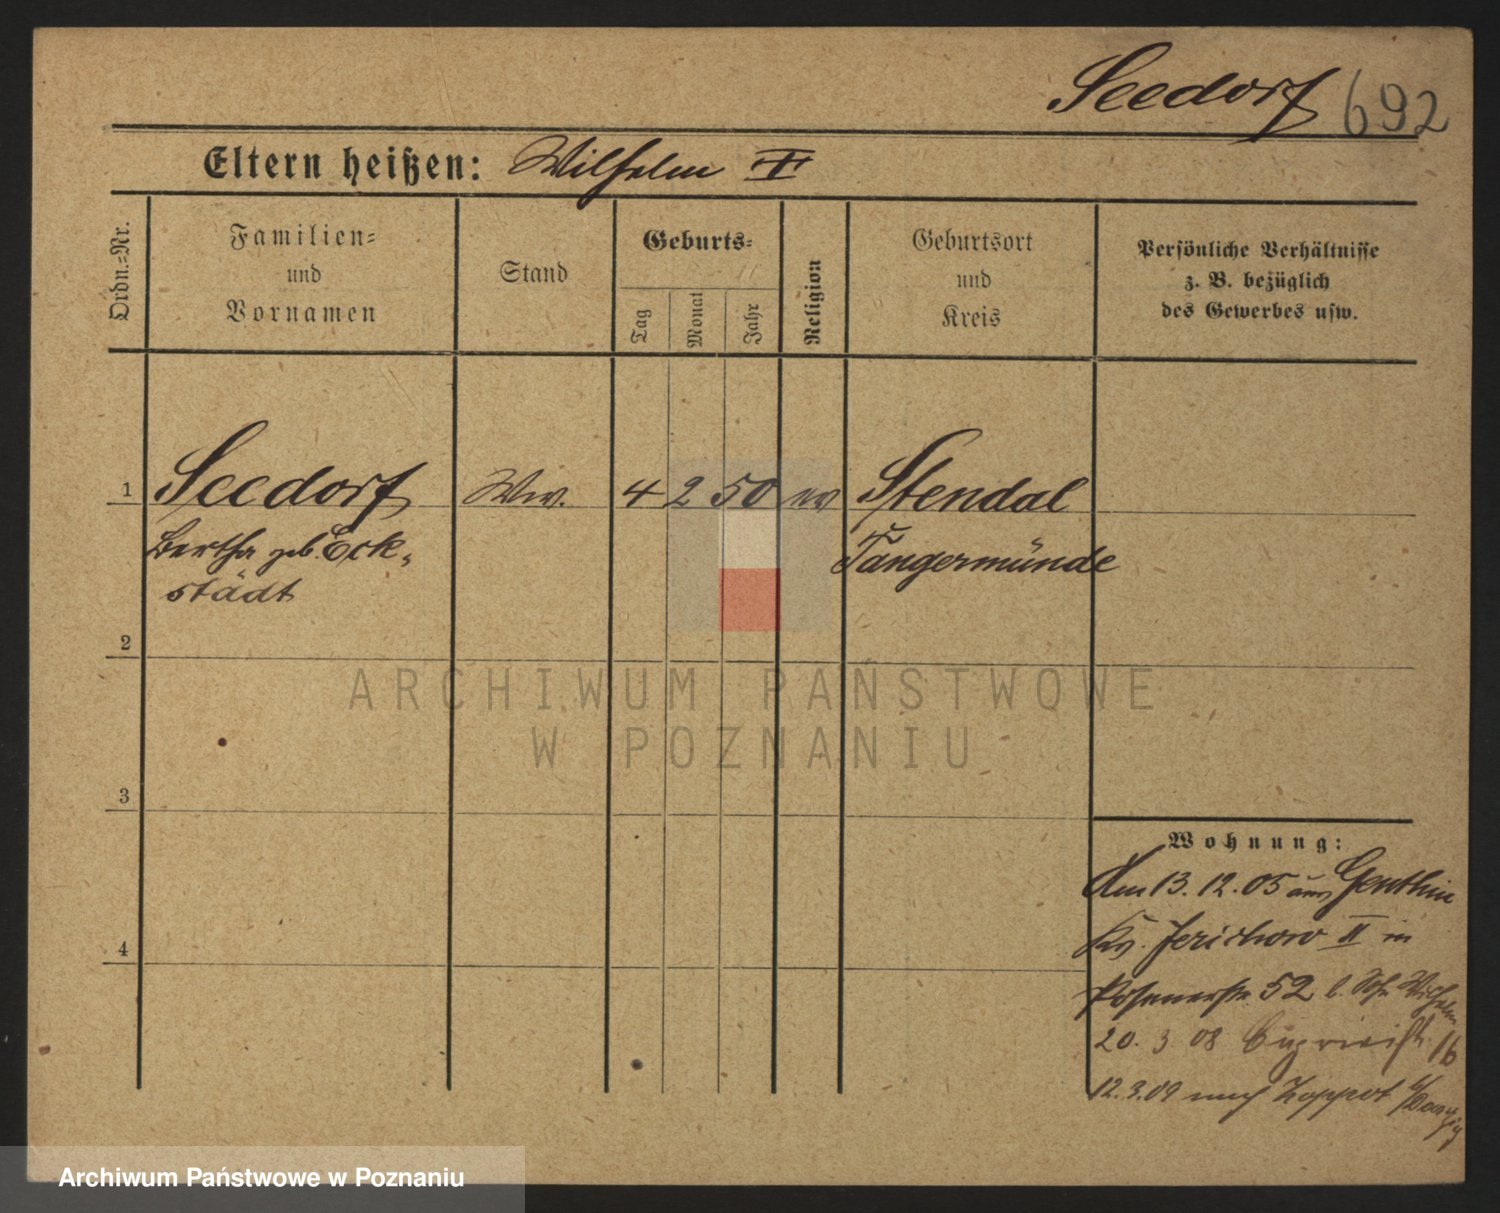 Seedorf 692
Eltern heißen: Wilhelm †
Ordn.=Nr.
Familien=
und
Vornamen
Stand
Geburts=
Tag
Monat
Jahr
Religion
Geburtsort
und
Kreis
Persönliche Verhältnisse
z. B. bezüglich
des Gewerbes usw.
1 Seedorf Ww. 4 2 50 ev Stendal
Bertha geb. Eck=
städt
Tangermünde
2
3
4
Wohnung:
Am 13. 12. 05 aus Genthin
Kr. Jerichow II in
Posenerstr. 52 b. Sohn Wilhelm
20. 3 08 16
12.3.09 nach Zoppot b/Danzig
ARCHIWUM PAŃSTWOWE
W POZNANIU
Archiwum Państwowe w Poznaniu